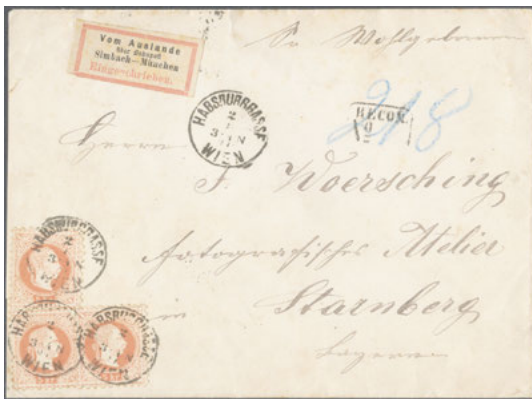 Vom Auslande
über Bahnpost
Simbach-München
Eingeschrieben.
Sr Wohlgeboren
HABSBURGGASSE
WIEN
RECOM.
218
Herrn
F. Woersching
fotografisches Atelier
in
Starnberg
Bayern
HABSBURGGASSE
WIEN
HABSBURGGASSE
WIEN
HABSBURGGASSE
WIEN